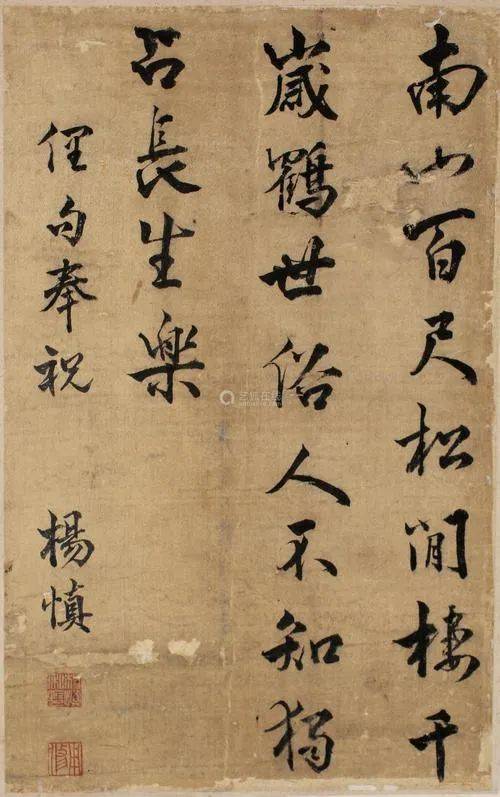 南山百尺松閒棲千
歲鶴世俗人不知獨
占長生樂
俚句奉祝
楊慎